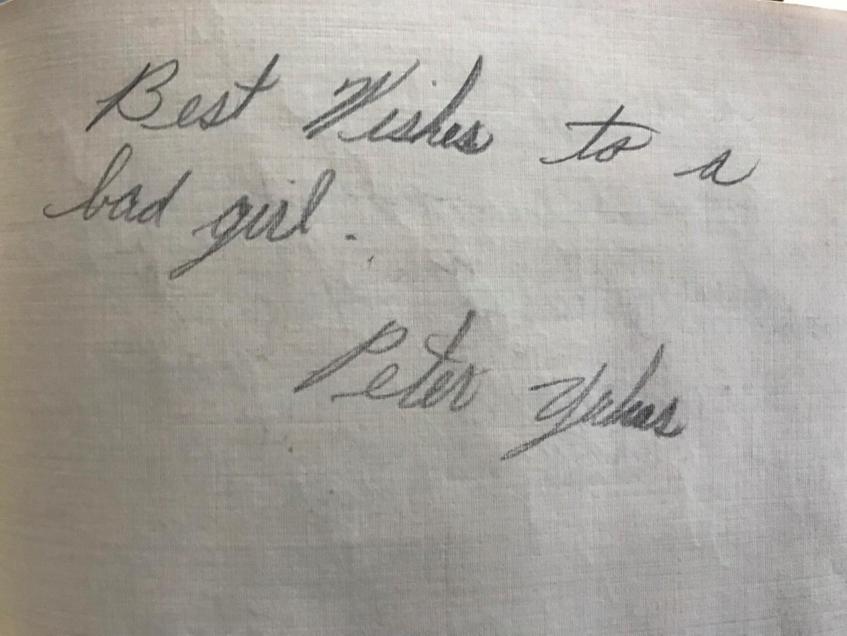 Best Wishes to a
bad girl.
Peter